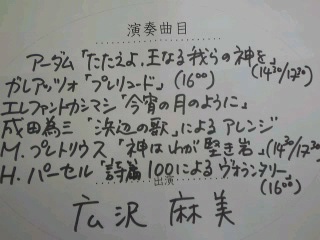 演奏曲目
アーダム「たたえよ、王なる我らの神を」(14:30/17:30)
ガレアッツォ「プレリュード」(16:00)
エレファントカシマシ「今宵の月のように」
成田為三「浜辺の歌」によるアレンジ
M. プレトリウス「神はわが堅き岩」(14:30/17:30)
H. パーセル「詩篇100によるヴォランタリー」(16:00)
出演
広沢 麻美